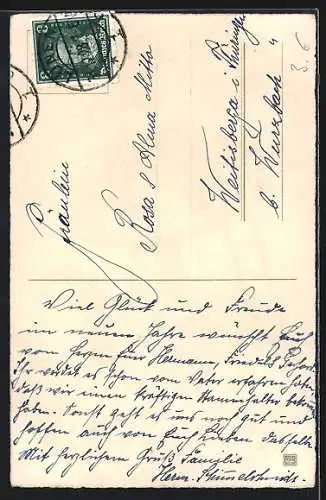 Fräulein
Rosa & Alma Motto
Weitisberga i. Thüringen
b. Wurzbach
3.6
Viel Glück und Freude
im neuen Jahre wünscht Euch
von Herzen Hermann, Frieda
Ihr werdet es schon vom Vater erfahren haben
daß wir einen kräftigen Stammhalter
haben. Sonst geht es uns noch gut und
hoffen auch von Euch Lieben dasselbe
Mit herzlichem Gruß Familie
Herm.